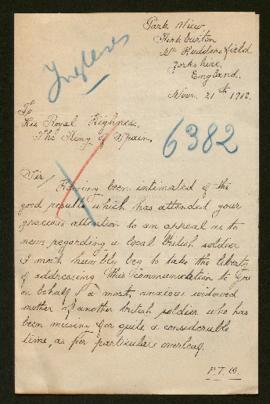 Park View,
Kirkburton
Nr Huddersfield
Yorkshire,
England.
Nov. 21st 1917.
Ingleses
To
His Royal Highness,
The King of Spain.
6382
Sir,
Having been intimated of the
good results which has attended your
gracious attention to an appeal as to
news regarding a local British soldier
I most humbly beg to take the liberty
of addressing this communication to you
on behalf of a most anxious widowed
mother of another British soldier who has
been missing for quite a considerable
time, as per particulars overleaf.
P.T.O.